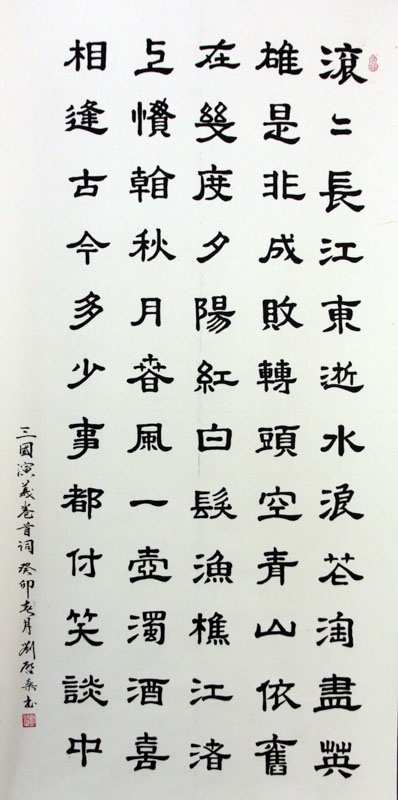 滾〻長江東逝水浪花淘盡英
雄是非成敗轉頭空青山依舊
在幾度夕陽紅白髮漁樵江渚
上慣看秋月春風一壺濁酒喜
相逢古今多少事都付笑談中
三國演義卷首詞 癸卯月 劉书